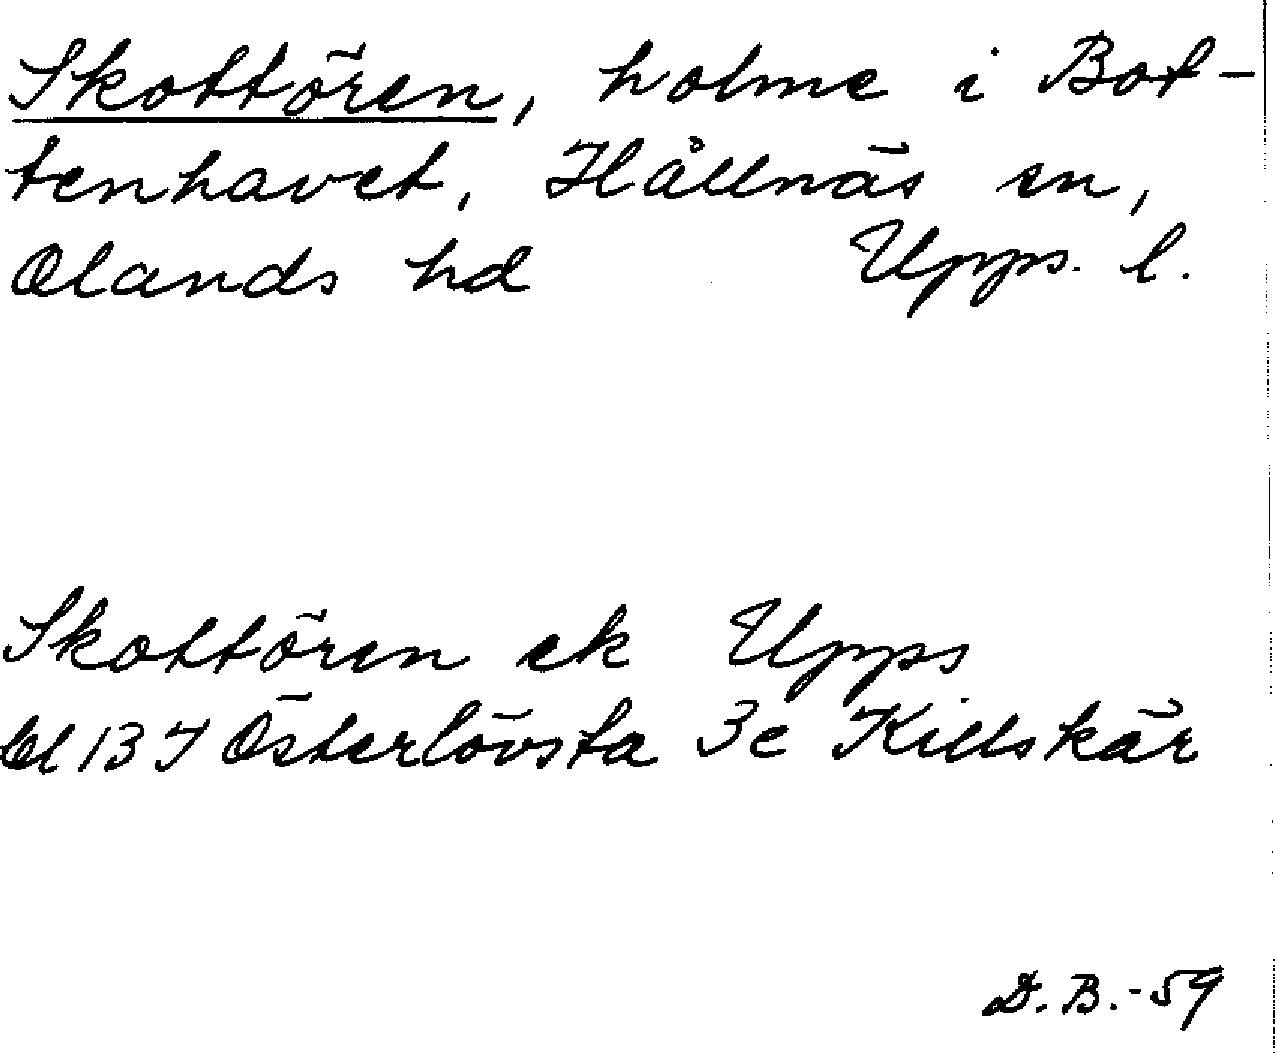 Skottören, holme i Bot-
tenhavet, Hållnäs sn,
Olands hd Upps. l.
Skottören ek Upps
bl 13 I Österlövsta 3e Killskär
D.B.-59